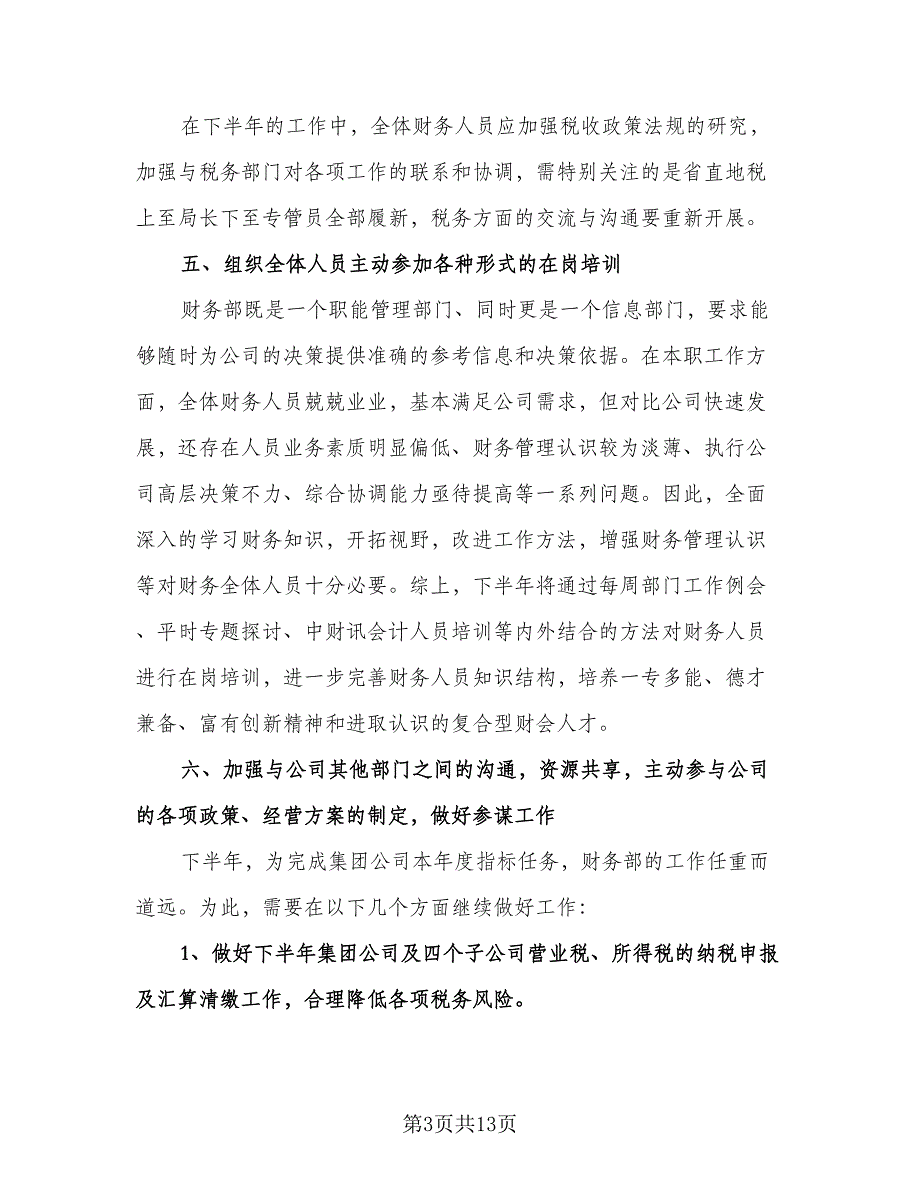 在下半年的工作中，全体财务人员应加强税收政策法规的研究，
加强与税务部门对各项工作的联系和协调，需特别关注的是省直地税
上至局长下至专管员全部履新，税务方面的交流与沟通要重新开展。
五、组织全体人员主动参加各种形式的在岗培训
财务部既是一个职能管理部门、同时更是一个信息部门，要求能
够随时为公司的决策提供准确的参考信息和决策依据。在本职工作方
面，全体财务人员兢兢业业，基本满足公司需求，但对比公司快速发
展，还存在人员业务素质明显偏低、财务管理认识较为淡薄、执行公
司高层决策不力、综合协调能力亟待提高等一系列问题。因此，全面
深入的学习财务知识，开拓视野，改进工作方法，增强财务管理认识
等对财务全体人员十分必要。综上，下半年将通过每周部门工作例会
、平时专题探讨、中财讯会计人员培训等内外结合的方法对财务人员
进行在岗培训，进一步完善财务人员知识结构，培养一专多能、德才
兼备、富有创新精神和进取认识的复合型财会人才。
六、加强与公司其他部门之间的沟通，资源共享，主动参与公司
的各项政策、经营方案的制定，做好参谋工作
下半年，为完成集团公司本年度指标任务，财务部的工作任重而
道远。为此，需要在以下几个方面继续做好工作：
1、做好下半年集团公司及四个子公司营业税、所得税的纳税申报
及汇算清缴工作，合理降低各项税务风险。
第3页共13页